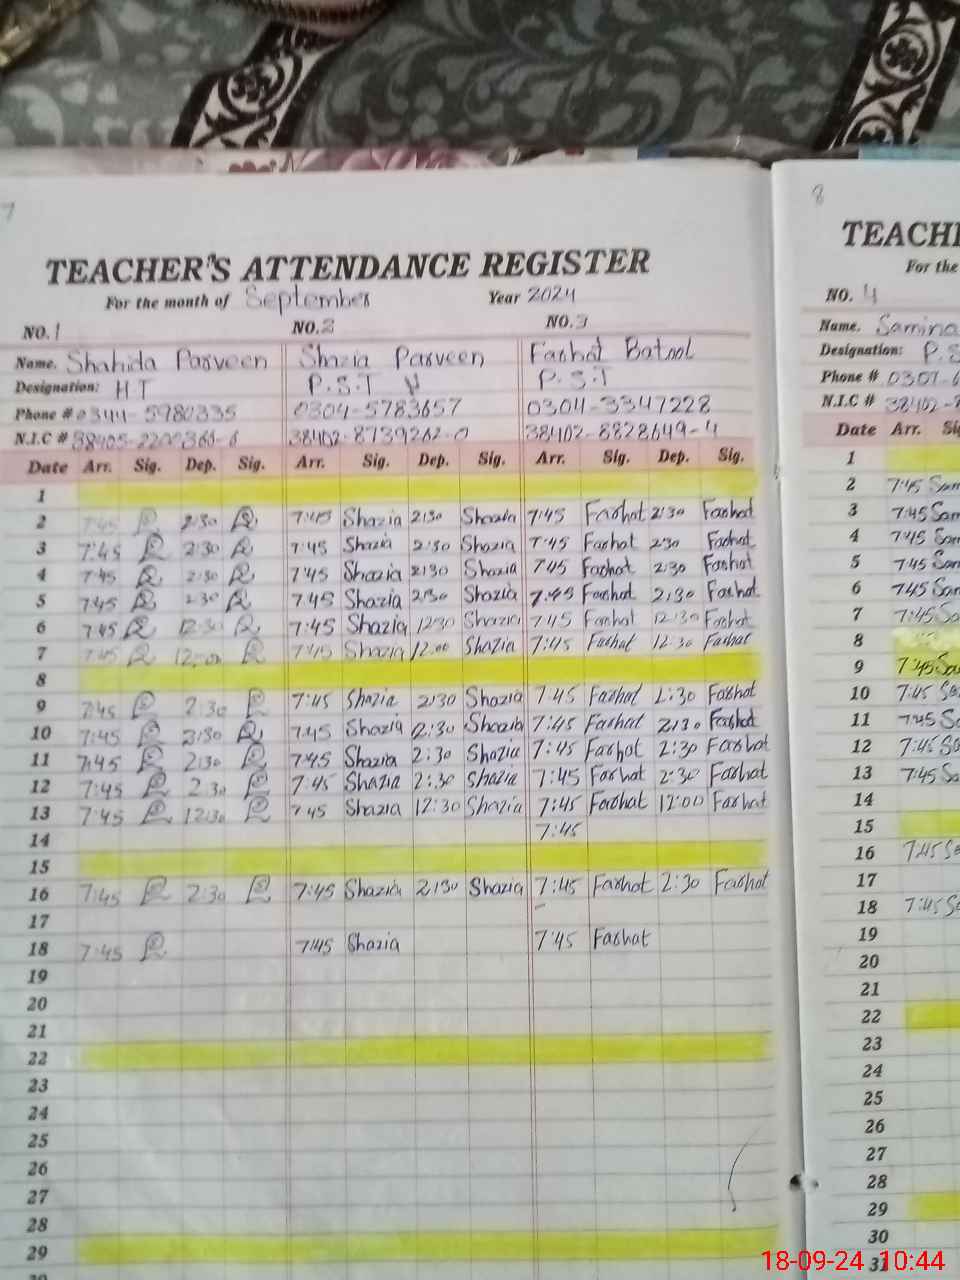 7
8
TEACHER'S ATTENDANCE REGISTER
TEACH
For the month of September Year 2024
For the
NO. 1 NO. 2 NO. 3
NO. 4
Name. Shahida Parveen Shazia Parveen Farhat Batool
Name. Samina
Designation: HT P.S.T P.S.T
Designation: P.S
Phone # 0344-5980335 0304-5783657 0304-3347228
Phone # 0307-6
N.I.C # 38402-8739262-0 38402-8828649-4
N.I.C # 38402-
Date Arr. Sig. Dep. Sig. Arr. Sig. Dep. Sig. Arr. Sig. Dep. Sig.
Date Arr. Sig
1
2 7:45 2:30 7:45 Shazia 2:30 Shazia 7:45 Farhat 2:30 Farhat
3 7:45 2:30 7:45 Shazia 2:30 Shazia 7:45 Farhat 2:30 Farhat
4 7:45 2:30 7:45 Shazia 2:30 Shazia 7:45 Farhat 2:30 Farhat
5 7:45 2:30 7:45 Shazia 2:30 Shazia 7:45 Farhat 2:30 Farhat
6 7:45 12:30 7:45 Shazia 12:30 Shazia 7:45 Farhat 12:30 Farhat
7 7:45 12:00 7:45 Shazia 12:00 Shazia 7:45 Farhat 12:30 Farhat
8
9 7:45 2:30 7:45 Shazia 2:30 Shazia 7:45 Farhat 2:30 Farhat
10 7:45 2:30 7:45 Shazia 2:30 Shazia 7:45 Farhat 2:30 Farhat
11 7:45 2:30 7:45 Shazia 2:30 Shazia 7:45 Farhat 2:30 Farhat
12 7:45 2:30 7:45 Shazia 2:30 Shazia 7:45 Farhat 2:30 Farhat
13 7:45 12:30 7:45 Shazia 12:30 Shazia 7:45 Farhat 12:00 Farhat
14 7:45
15
16 7:45 2:30 7:45 Shazia 2:30 Shazia 7:45 Farhat 2:30 Farhat
17
18 7:45 7:45 Shazia 7:45 Farhat
19
20
21
22
23
24
25
26
27
28
29
1
2 7:45 Sam
3 7:45 Sam
4 7:45 Sam
5 7:45 Sam
6 7:45 Sam
7 7:45 Sa
8
9 7:45 Sa
10 7:45 Sa
11 7:45 S
12 7:45 S
13 7:45 Sa
14
15
16 7:45 Sa
17
18 7:45 S
19
20
21
22
23
24
25
26
27
28
29
30
31
18-09-24 10:44